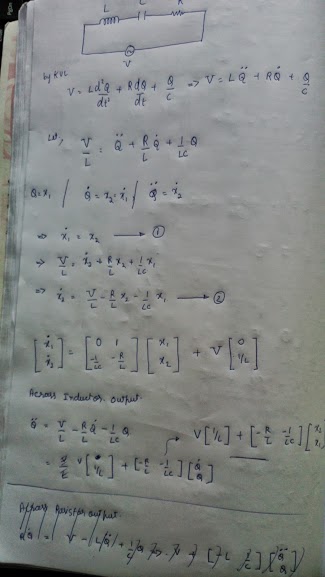 L C R
V
by KVL
V = L d²Q/dt² + R dQ/dt + Q/C ⇒ V = L Q̈ + R Q̇ + Q/C
Let,
V/L = Q̈ + R/L Q̇ + 1/LC Q
Q = x₁ / Q̇ = x₂ = ẋ₁ / Q̈ = ẋ₂
⇒ ẋ₁ = x₂ → ①
⇒ V/L = ẋ₂ + R/L x₂ + 1/LC x₁
⇒ ẋ₂ = V/L - R/L x₂ - 1/LC x₁ → ②
[ẋ₁ ẋ₂] = [0 1 -1/LC -R/L] [x₁ x₂] + V [0 1/L]
Across Inductor output
Q̈ = V/L - R/L Q̇ - 1/LC Q
V[1/L] + [-R/L -1/LC] [x₂ x₁]
= V [1/L] + [-R/L -1/LC] [Q̇ Q]
Across Resistor output